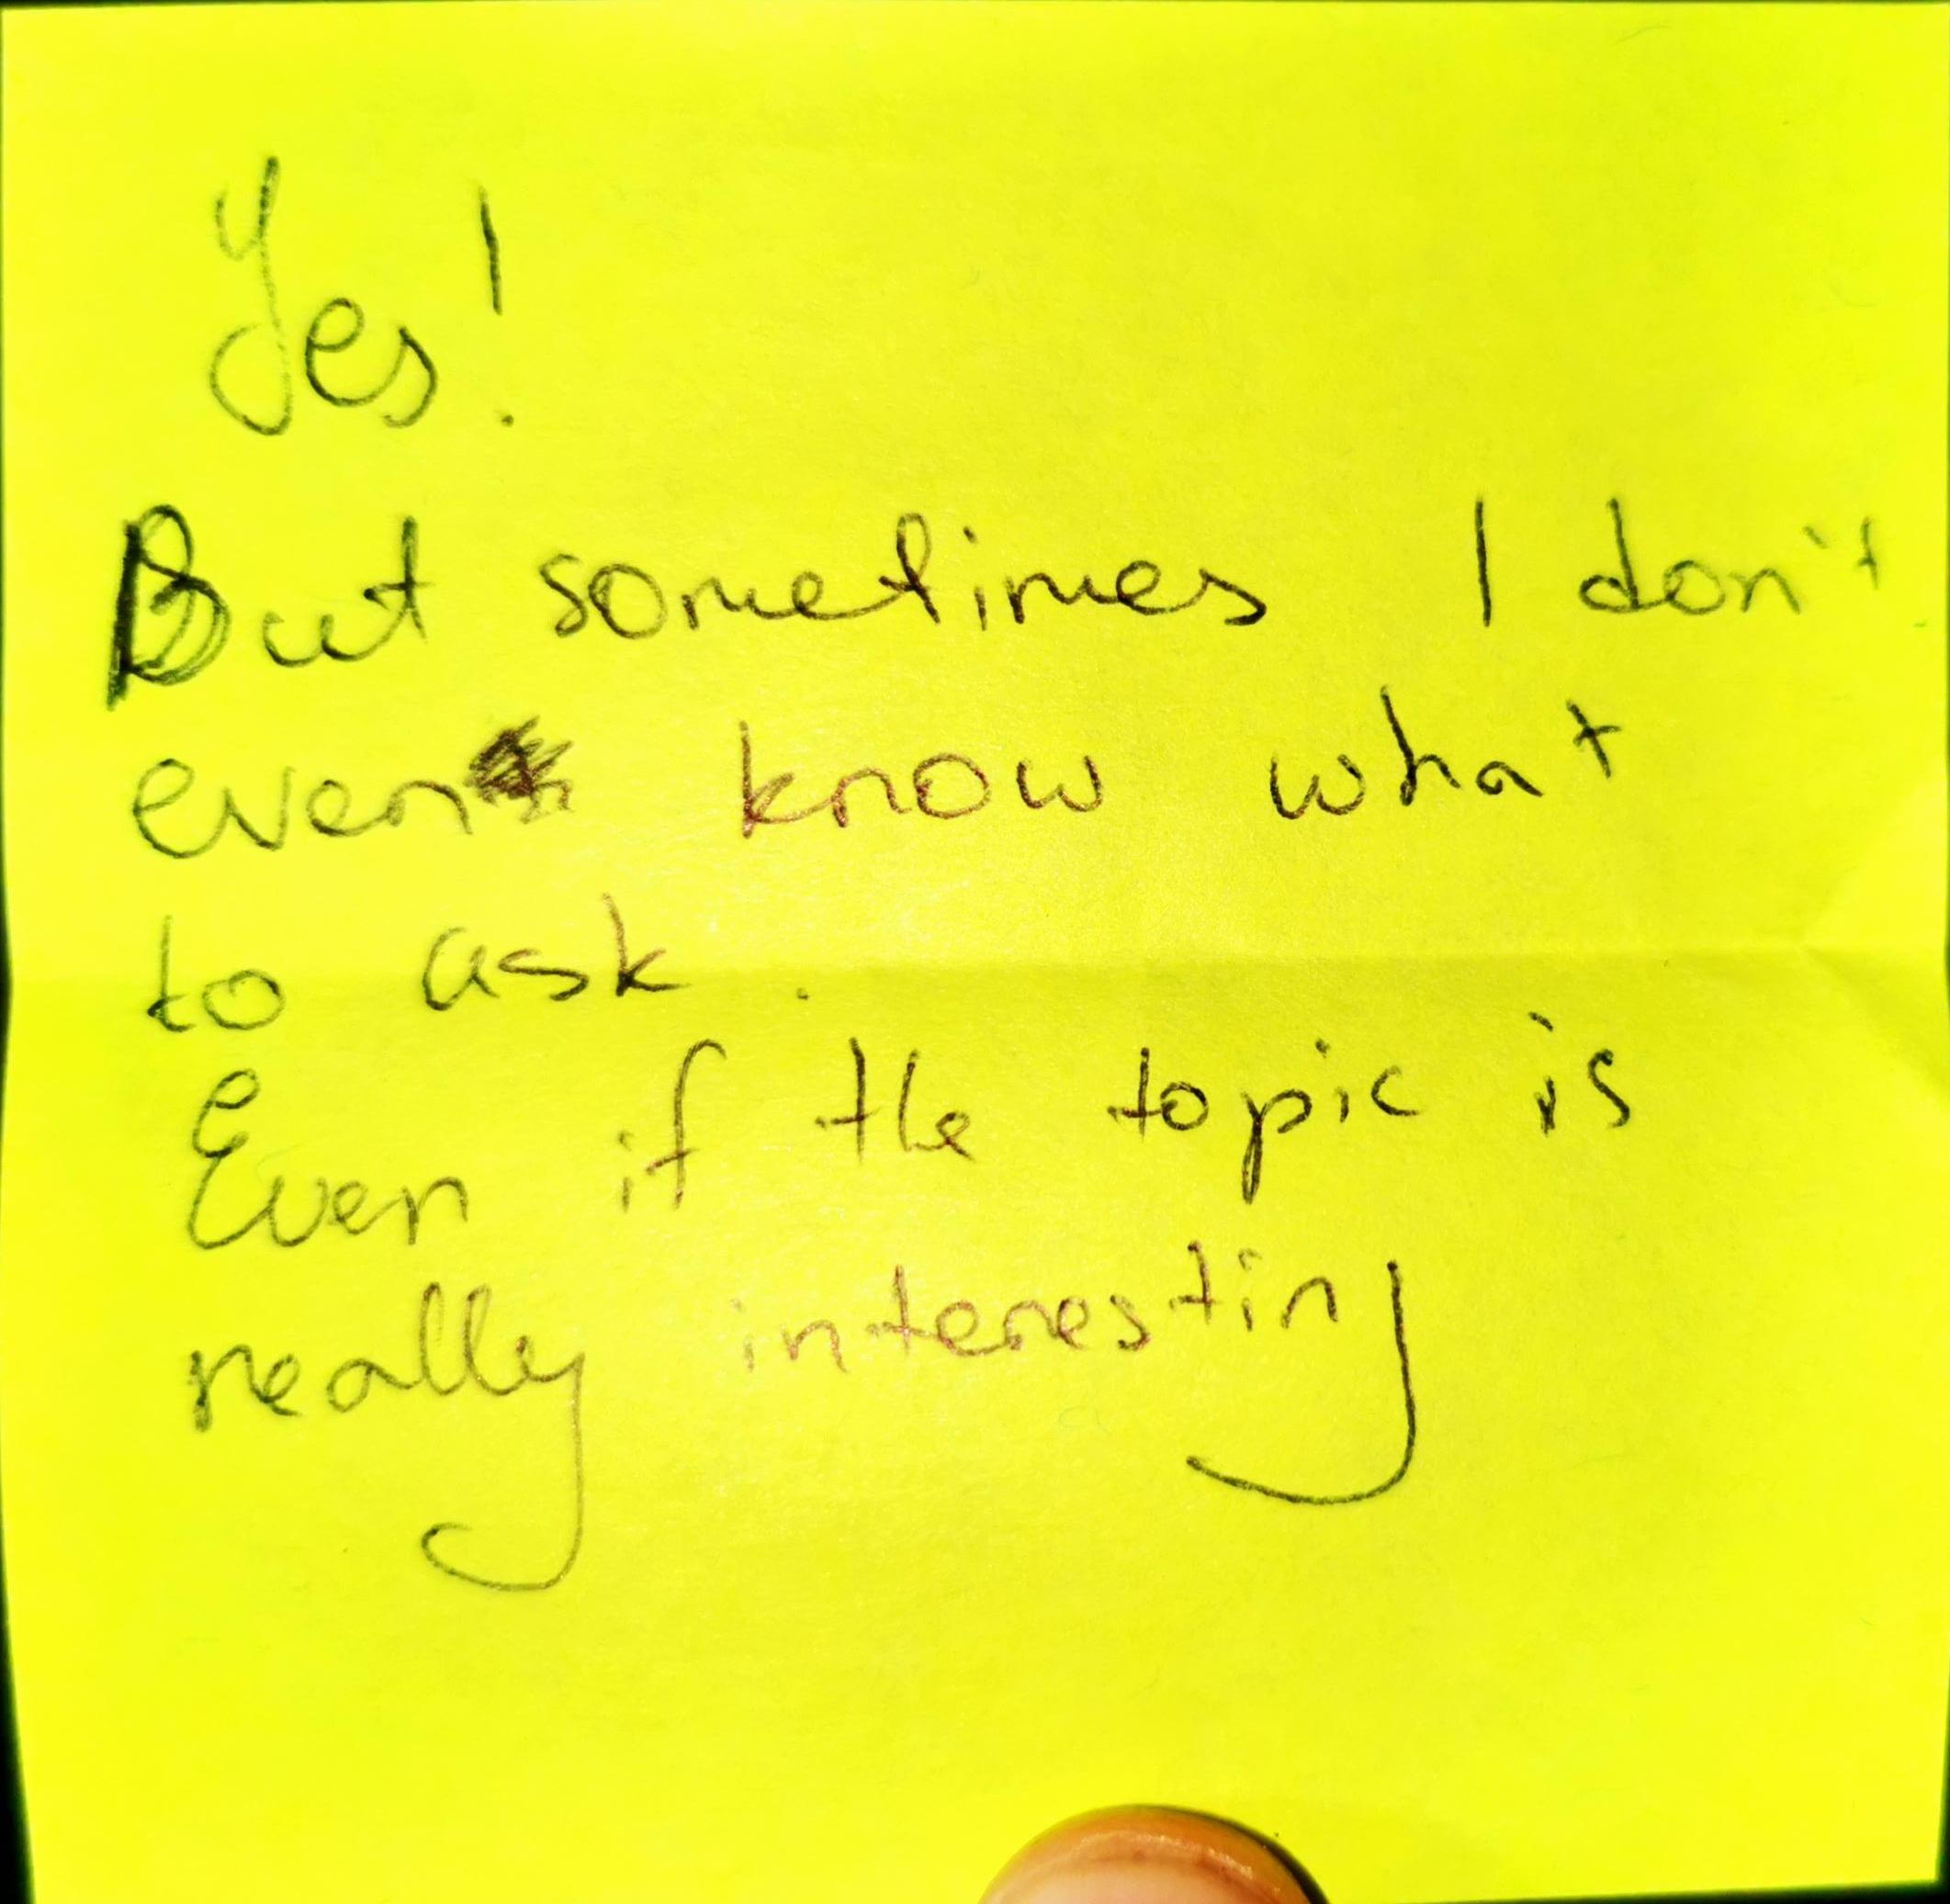 Yes!
But sometimes I don't
even know what
to ask.
Even if the topic is
really interesting